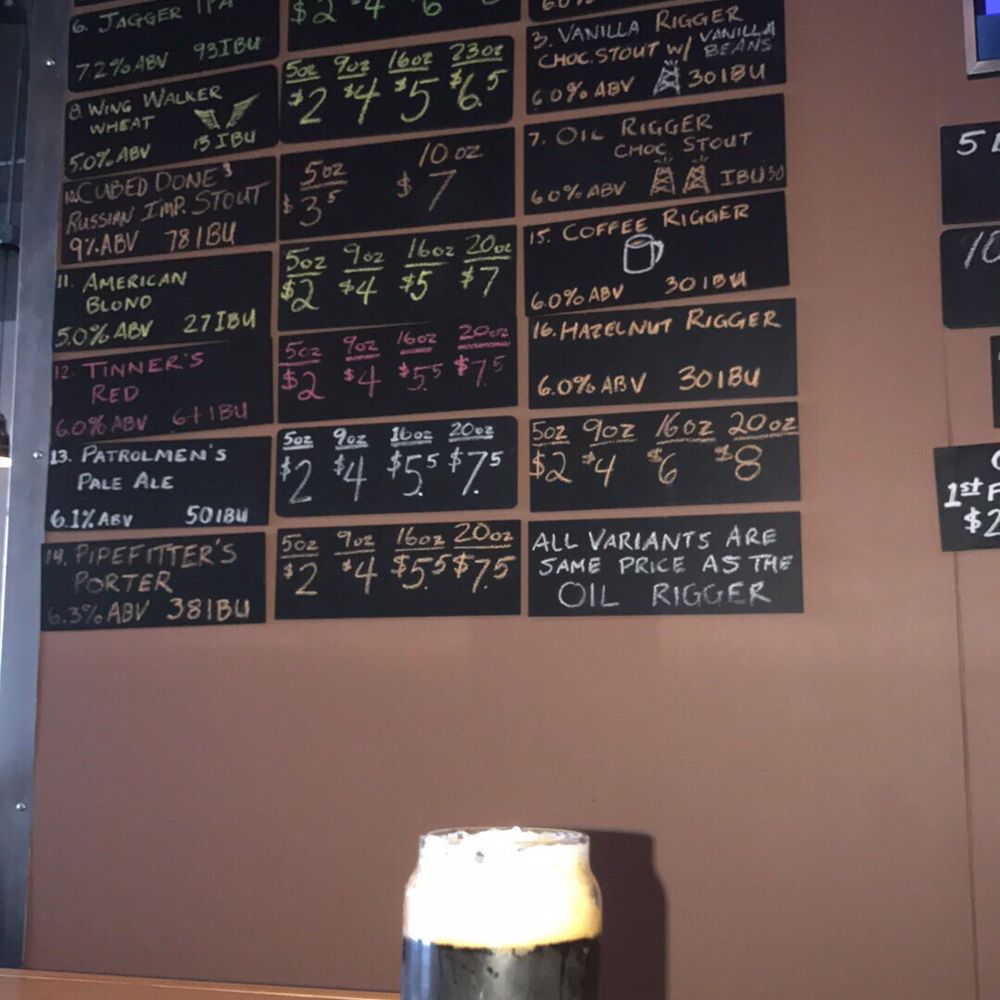 6. JAGGER IPA
7.2% ABV 93IBU
$2 4 6
8. WING WALKER
WHEAT
5.0% ABV 13 IBU
5oz 9oz 16oz 23oz
$2 $4 $5 $6.5
CUBED DONE 3
RUSSIAN IMP. STOUT
9% ABV 78 IBU
5oz 10oz
$3.5 $7
11. AMERICAN
BLOND
5.0% ABV 27 IBU
5oz 9oz 16oz 20oz
$2 $4 $5 $7
12. TINNER'S
RED
6.0% ABV IBU
5oz 9oz 16oz 20oz
$2 $4 $5.5 $7.5
13. PATROLMEN'S
PALE ALE
6.1% ABV 50 IBU
5oz 9oz 16oz 20oz
$2 $4 $5.5 $7.5
14. PIPEFITTER'S
PORTER
6.3% ABV 38 IBU
5oz 9oz 16oz 20oz
$2 $4 $5.5 $7.5
3. VANILLA RIGGER
CHOC. STOUT W/ VANILLA
BEANS
6.0% ABV 30 IBU
7. OIL RIGGER
CHOC STOUT
6.0% ABV IBU 30
15. COFFEE RIGGER
6.0% ABV 30 IBU
16. HAZELNUT RIGGER
6.0% ABV 30 IBU
5oz 9oz 16oz 20oz
$2 $4 $6 $8
ALL VARIANTS ARE
SAME PRICE AS THE
OIL RIGGER
5
10
1st F
$2